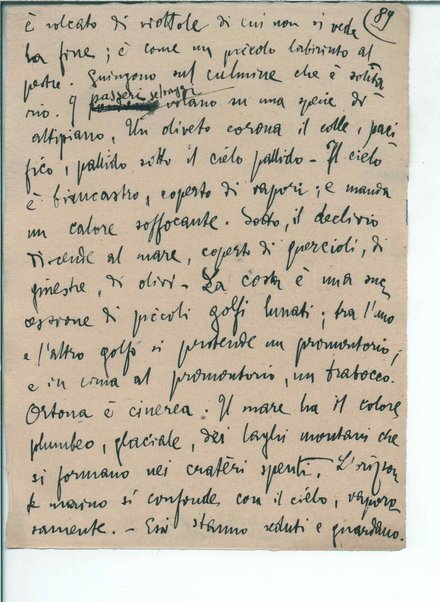 89
è solcato di viottole di cui non si vede
la fine; è come un piccolo labirinto al
pestre. Giungono sul culmine che è solita
rio. I passeri selvaggi volano su una specie di
altipiano. Un oliveto corona il colle, paci
fico, pallido sotto il cielo pallido – Il cielo
è biancastro, coperto di vapori; e manda
un calore soffocante. Sotto, il declivio
discende al mare, coperto di querciòli, di
ginestre, di olivi – La costa è una suc
cessione di piccoli golfi lunati; tra l'uno
e l'altro golfo si protende un promontorio,
e in cima al promontorio, un trabocco.
Ortona è cinerea. Il mare ha il colore
plumbeo, glaciale, dei laghi montani che
si formano nei cratèri spenti. L'orizzon
te marino si confonde con il cielo, vaporo
samente. – Essi stanno seduti e guardano.